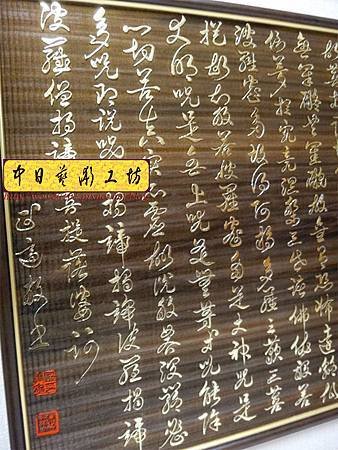 無罣礙無罣礙故無有恐怖遠離顛
倒夢想究竟涅槃三世諸佛依般若
波羅蜜多故得阿耨多羅三藐三菩
提故知般若波羅蜜多是大神咒是
大明咒是無上咒是無等等咒能除
一切苦真實不虛故說般若波羅蜜
多咒即說咒揭諦揭諦波羅揭諦
波羅僧揭諦菩提薩婆訶
中日藝彫工坊